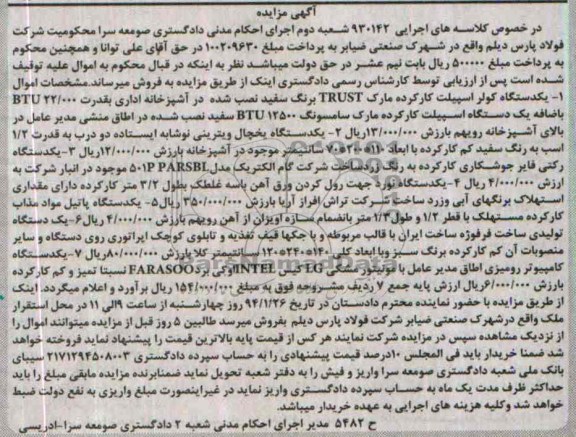 آگهی مزایده
در خصوص کلاسه های اجرایی ۹۳۰۱۴۲ شعبه دوم اجرای احکام مدنی دادگستری صومعه سرا محکومیت شرکت
فولاد پارس دیلم واقع در شهرک صنعتی ضیابر به پرداخت مبلغ ۱۰۰۲۰۹۶۳۰ در حق آقای علی توانا و همچنین محکوم
به پرداخت مبلغ ۵۰۰۰۰۰ ریال بابت نیم عشر در حق دولت میباشد نظر به اینکه در قبال محکوم به اموال علیه توقیف
شده است پس از ارزیابی توسط کارشناس رسمی دادگستری اینک از طریق مزایده به فروش میرساند.مشخصات اموال
۱- یکدستگاه کولر اسپیلت کارکرده مارک TRUST برنگ سفید نصب شده در آشپزخانه اداری بقدرت BTU ۲۲/۰۰۰
باضافه یک دستگاه اسپیلت کارکرده مارک سامسونگ ۱۲۵۰۰ BTU سفید نصب شده در اطاق منشی مدیر عامل در
بالای آشپزخانه رویهم بارزش ۱۳/۰۰۰/۰۰۰ریال ۲- یکدستگاه یخچال ویترینی نوشابه ایستاده دو درب به قدرت ۱/۲
اسب به رنگ سفید کم کارکرده با ابعاد ۱۱۰*۷۰*۲۰۰ سانتیمتر موجود در آشپزخانه بارزش ۱۲/۰۰۰/۰۰۰ریال ۳-یکدستگاه
رکتی فایر جوشکاری کارکرده به رنگ زرد ساخت شرکت گام الکتریک مدل ۵۰۱P PARSBL موجود در انبار شرکت به
ارزش ۴/۰۰۰/۰۰۰ ریال ۴-یکدستگاه نورد جهت رول کردن ورق آهن باسه غلطک بطول ۳/۲ متر کارکرده دارای مقداری
استهلاک برنگهای آبی وزرد ساخت شرکت تراش افراز آریا بارزش ۳۵۰/۰۰۰/۰۰۰ریال۵- یکدستگاه پاتیل مواد مذاب
کارکرده مستهلک با قطر ۱/۲ و طول۱/۳ متر بانضمام سازه آویزان از آهن رویهم بارزش ۴/۰۰۰/۰۰۰ ریال۶-یک دستگاه
تولیدی ساخت فرفوژه ساخت ایران با قالب مربوطه و با جکها قیف تغذیه و تابلوی کوچک اپراتوری روی دستگاه و سایر
منصوبات آن کم کارکرده برنگ سبز وبا ابعاد کلی ۱۴۰*۲۴۰*۱۲۰ سانتیمتر کلا بارزش ۸۰/۰۰۰/۰۰۰ریال ۷-یکدستگاه
کامپیوتر رومیزی اطاق مدیر عامل با مونیتور مشکی LG کیس INTEL وکیبرد FARASOO نسبتا تمیز و کم کارکرده
بارزش ۶/۰۰۰/۰۰۰ریال ارزش پایه جمع ۷ ردیف مشروحه فوق به مبلغ ۱۵۴/۰۰۰/۰۰۰ ریال برآورد و اعلام میگردد. اینک
از طریق مزایده با حضور نماینده محترم دادستان در تاریخ ۹۴/۱/۲۶ روز چهارشنبه از ساعت ۹الی ۱۱ در محل استقرار
ملک واقع درشهرک صنعتی ضیابر شرکت فولاد پارس دیلم بفروش میرسد طالبین ۵ روز قبل از مزایده میتوانند اموال را
از نزدیک مشاهده سپس در مزایده شرکت نمایند هر کس از قیمت پایه بالاترین قیمت را پیشنهاد نماید فروخته خواهد
شد ضمنا خریدار باید فی المجلس ۱۰درصد قیمت پیشنهادی را به حساب سپرده دادگستری ۲۱۷۱۲۹۴۵۰۸۰۰۳ سیبای
بانک ملی شعبه دادگستری صومعه سرا واریز و فیش را به دفتر شعبه تحویل نماید ضمنابرنده مزایده مابقی مبلغ را باید
حداکثر ظرف مدت یک ماه به حساب سپرده دادگستری واریز نماید در غیراینصورت مبلغ واریزی به نفع دولت ضبط
خواهد شد وکلیه هزینه های اجرایی به عهده خریدار میباشد.
ح ۵۴۸۲ مدیر اجرای احکام مدنی شعبه ۲ دادگستری صومعه سرا-ادریسی